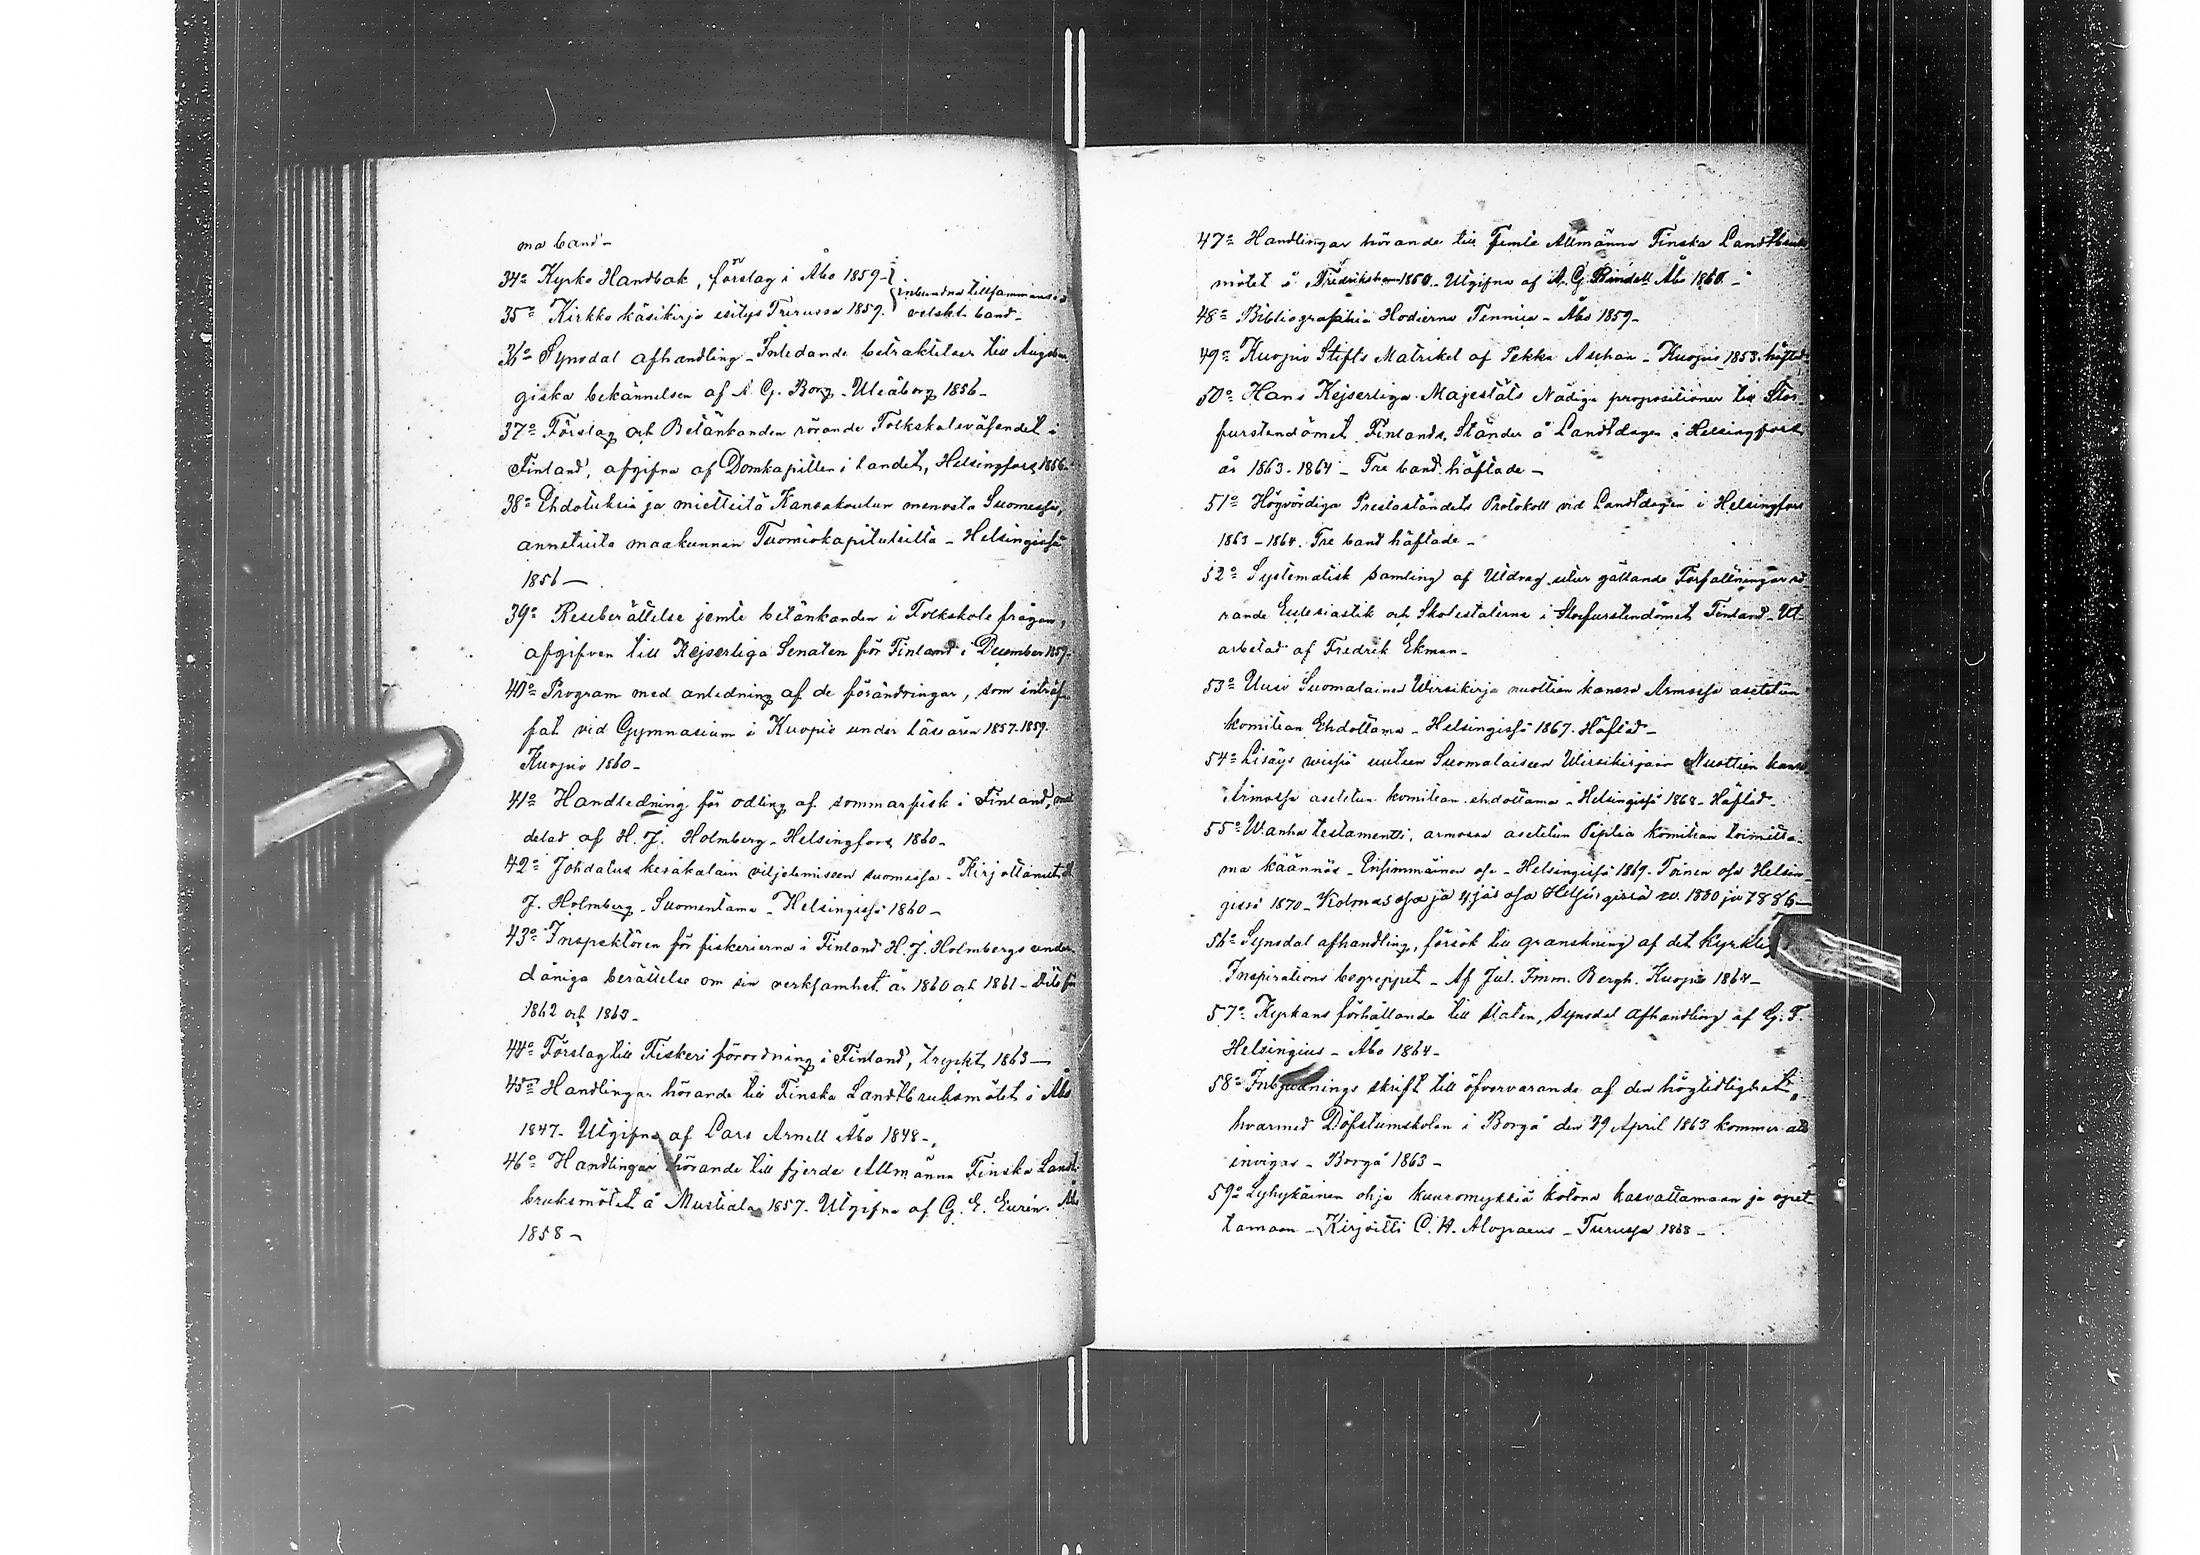 ma band -
34o Kyrko Handbok, förslag i Åbo 1859 -
inbundna tillsammans i
35o Kirkko käsikirja esitys Turussa 1859.
velskt band -
36o Synodal afhandling - Inledande betraktelser till Augsbur
giska bekännelsen af A. G. Borg - Uleåborg 1856 -
37o Förslag och Betänkanden rörande Folkskoleväsendet i
Finland, afgifna af Domkapitlen i landet, Helsingfors 1856 -
38o Ehdotuksia ja mietteitä Kansakoulun menosta Suomessa,
annetuita maakunnan Tuomiokapituleilta - Helsingissä
1856 -
39o Reseberättelse jemte betänkanden i Folkskole frågan,
afgifven till Kejserliga Senaten för Finland i December 1857 -
40o Program med anledning af de förändringar, som inträf
fat vid Gymnasium i Kuopio under läseåren 1857-1859.
Kuopio 1860 -
41o Handledning för odling af sommarfisk i Finland, med
delad af H. J. Holmberg - Helsingfors 1860 -
42o Johdatus kesäkalain viljelemiseen suomessa - Kirjottanut H
J. Holmberg - Suomentama - Helsingissä 1860 -
43o Inspektören för fiskerierna i Finland H. J. Holmbergs under
dåniga berättelse om sin verksamhet år 1860 och 1861 - Dito för
1862 och 1863 -
44o Förslag till Fiskeri förordning i Finland, tryckt 1863 -
45o Handlingar hörande till Finska Landtbruksmötet i Åbo
1847 - Utgifna af Lars Arnell Åbo 1848 -
46o Handlingar hörande till fjerde Allmänna Finska Landt
bruksmötet å Mustiala 1857. Utgifna af G. E. Eurén. Åbo
1858 -
47o Handlingar hörande till Femte Allmänna Finska Landtbruks
mötet i Fredrikshamn 1860 - Utgifna af A. G. Rindell Åbo 1860 -
48o Bibliographia Hodierna Fennica - Åbo 1859 -
49o Kuopio Stifts Matrikel af Pekka Aschan - Kuopio 1853. häftad
50o Hans Kejserliga Majestäts Nådiga propositioner till Stor
furstendömet Finlands Ständer å Landtdagen i Helsingfors
år 1863-1864 - Tre band häftade -
51o Högvördiga Presteståndets Protokoll vid Landtdagen i Helsingfors
1863-1864. Tre band häftade -
52o Systematisk samling af Utdrag utur gällande Författningar rö
rande Ecclesiastik och Skolestaterna i Storfurstendömet Finland - Ut-
arbetad af Fredrik Ekman -
53o Uusi Suomalainen Wirsikirja nuottien kanssa Armossa asetetun
komitean Ehdottama - Helsingissä 1867. Häftad -
54o Lisäys wirsiä uuteen Suomalaiseen Wirsikirjaan Nuottien kanssa,
Armossa asetetun komitean ehdottama - Helsingissä 1868 - Häftad -
55o Wanha testamentti, armossa asetetun Piplia komitean toimitta-
ma käännös - Ensimmäinen osa - Helsingissä 1869. Toinen osa Helsin-
gissä 1870 - Kolmas osa ja 4jäs osa Helsingissä w. 1880 ja 1886 -
56o Synodal afhandling, försök till granskning af det kyrkliga
Inspirations begreppet - Af Jul. Imm. Bergh. Kuopio 1864 -
57o Kyrkans förhållande till staten, Synodal afhandling af G. F.
Helsingius - Åbo 1864 -
58o Inbjudnings skrift till öfvervarande af den högtidlighet,
hvarmed Döfstumskolan i Borgå den 29 April 1863 kommer att
invigas - Borgå 1863 -
59o Lyhykäinen ohje kuuromykkiä kotona kaswattamaan ja opet
tamaan - Kirjoitti C. H. Alopaeus - Turussa 1868 -